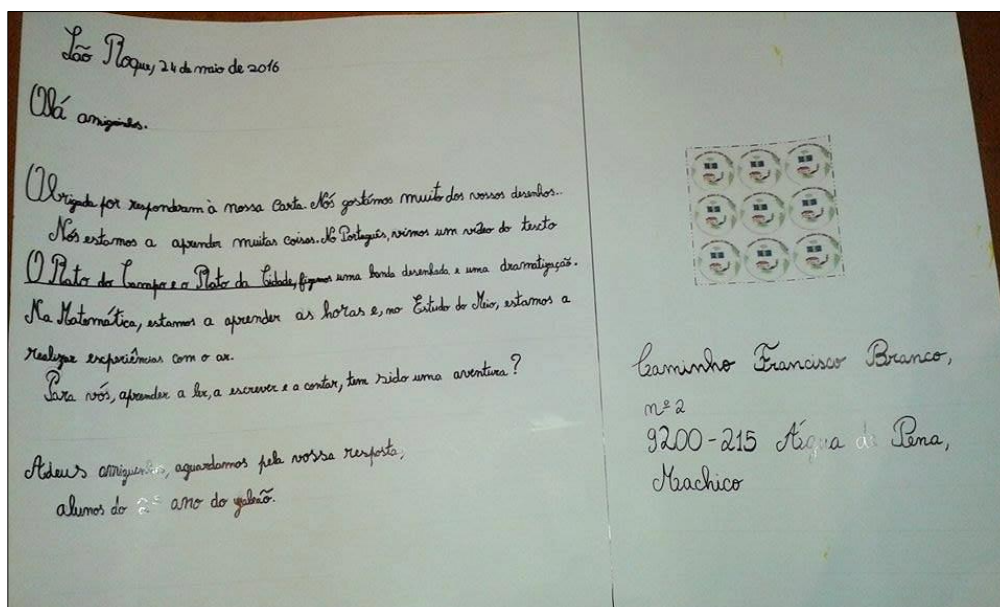 São Roque, 24 de maio de 2016
Olá amiguinhos.
Obrigada por responderam à nossa Carta. Nós gostámos muito dos vossos desenhos..
Nós estamos a aprender muitas coisas. No Português, vimos um video do texto
O Rato do Campo e o Rato da Cidade, fizemos uma banda desenhada e uma dramatização.
Na Matemática, estamos a aprender as horas e, no Estudo do Meio, estamos a
realizar experiências com o ar.
Para vós, aprender a ler, a escrever e a contar, tem sido uma aventura?
Adeus amiguinhos, aguardamos pela vossa resposta,
alunos do 2º ano do galeão.
Caminho Francisco Branco,
nº 2
9200-215 Água de Pena,
Machico